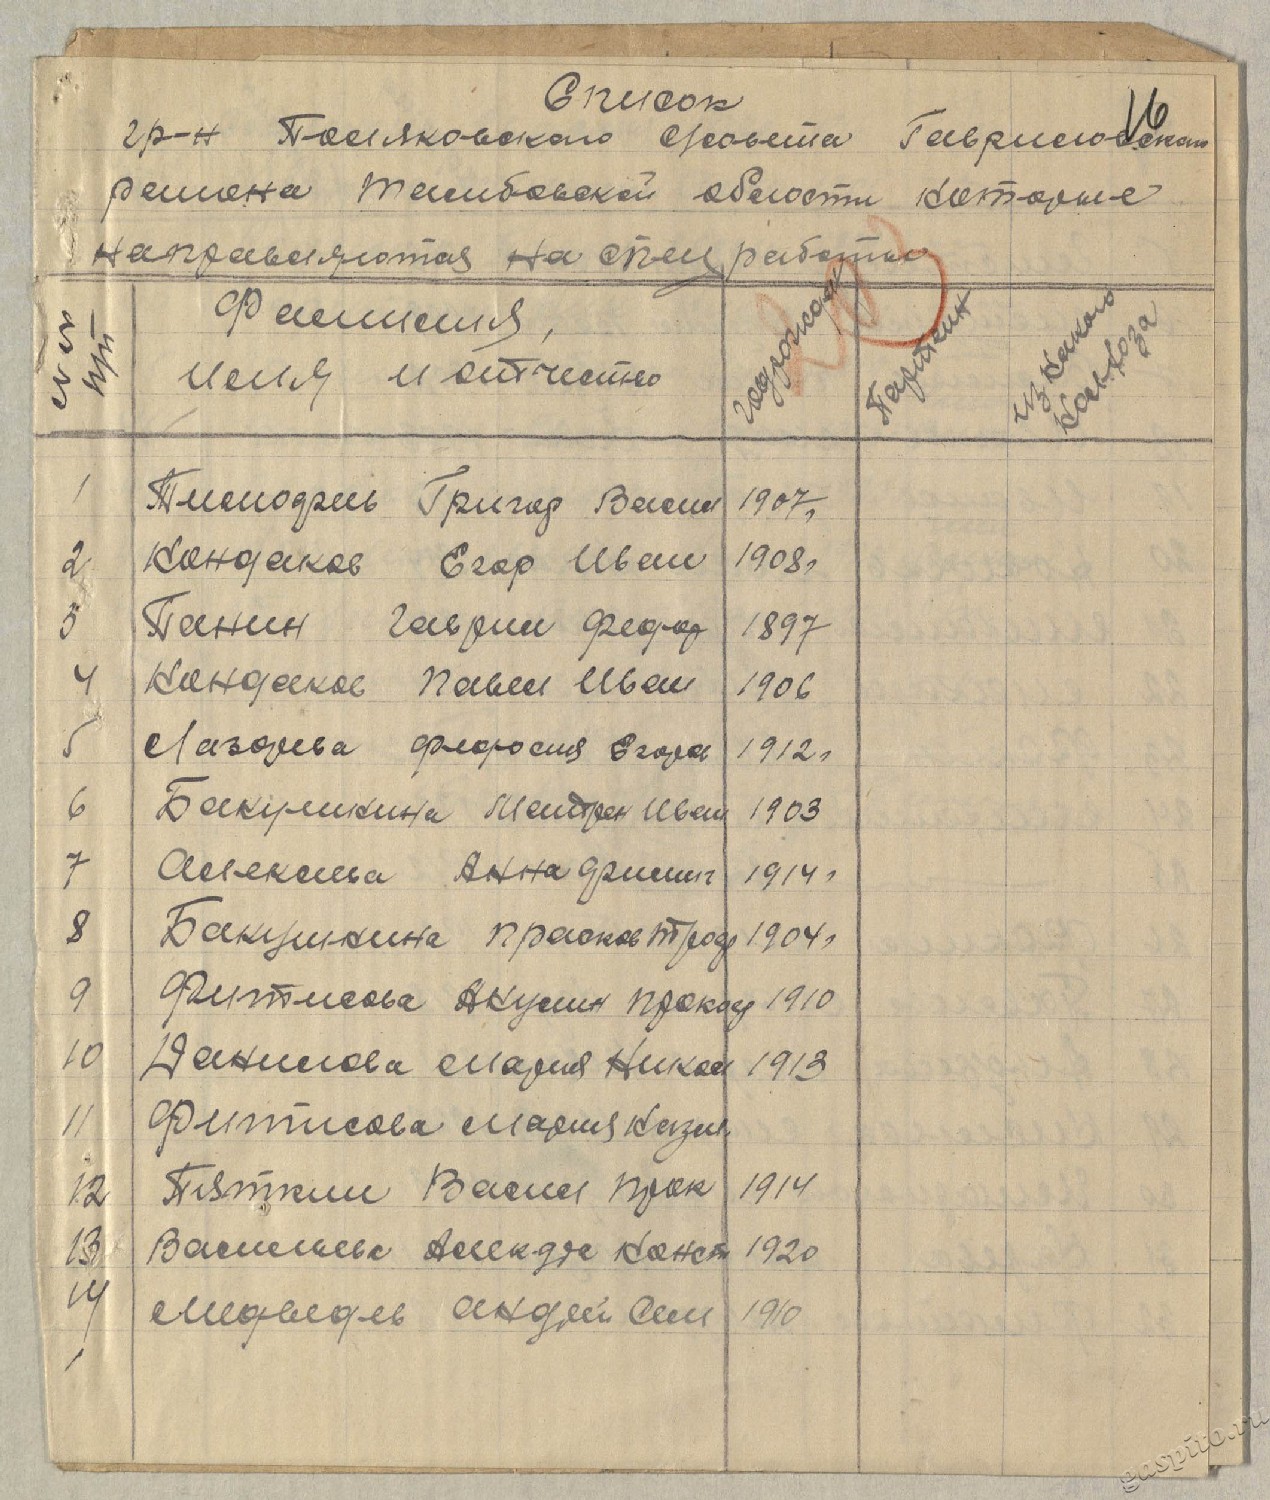 Список
16
гр-н Поляковского совета Гавриловского
района Тамбовской области которые
направляются на спец работы
№ № п/п
Фамилия,
имя и отчество
год рожден
Парт
из какого
колхоза
1 Григор Васил 1907,
2 Кондаков Егор Иван 1908,
3 Панин Гаврил Федор 1897
4 Кондаков Павел Иван 1906
5 Лазорева Федосия Егоров 1912,
6 Бакушкина Матрен Иван 1903
7 Алексеева Анна Филип 1914,
8 Бакушкина Прасков Троф 1904,
9 Фитисова Акулин Прокоф 1910
10 Данилова Мария Никол 1913
11 Фитисова Мария Кизил
12 Пяткин Васил Прок 1914
13 Васильева Алекдра Конст 1920
14 Медведев Андрей Сем 1910
gaspito.ru